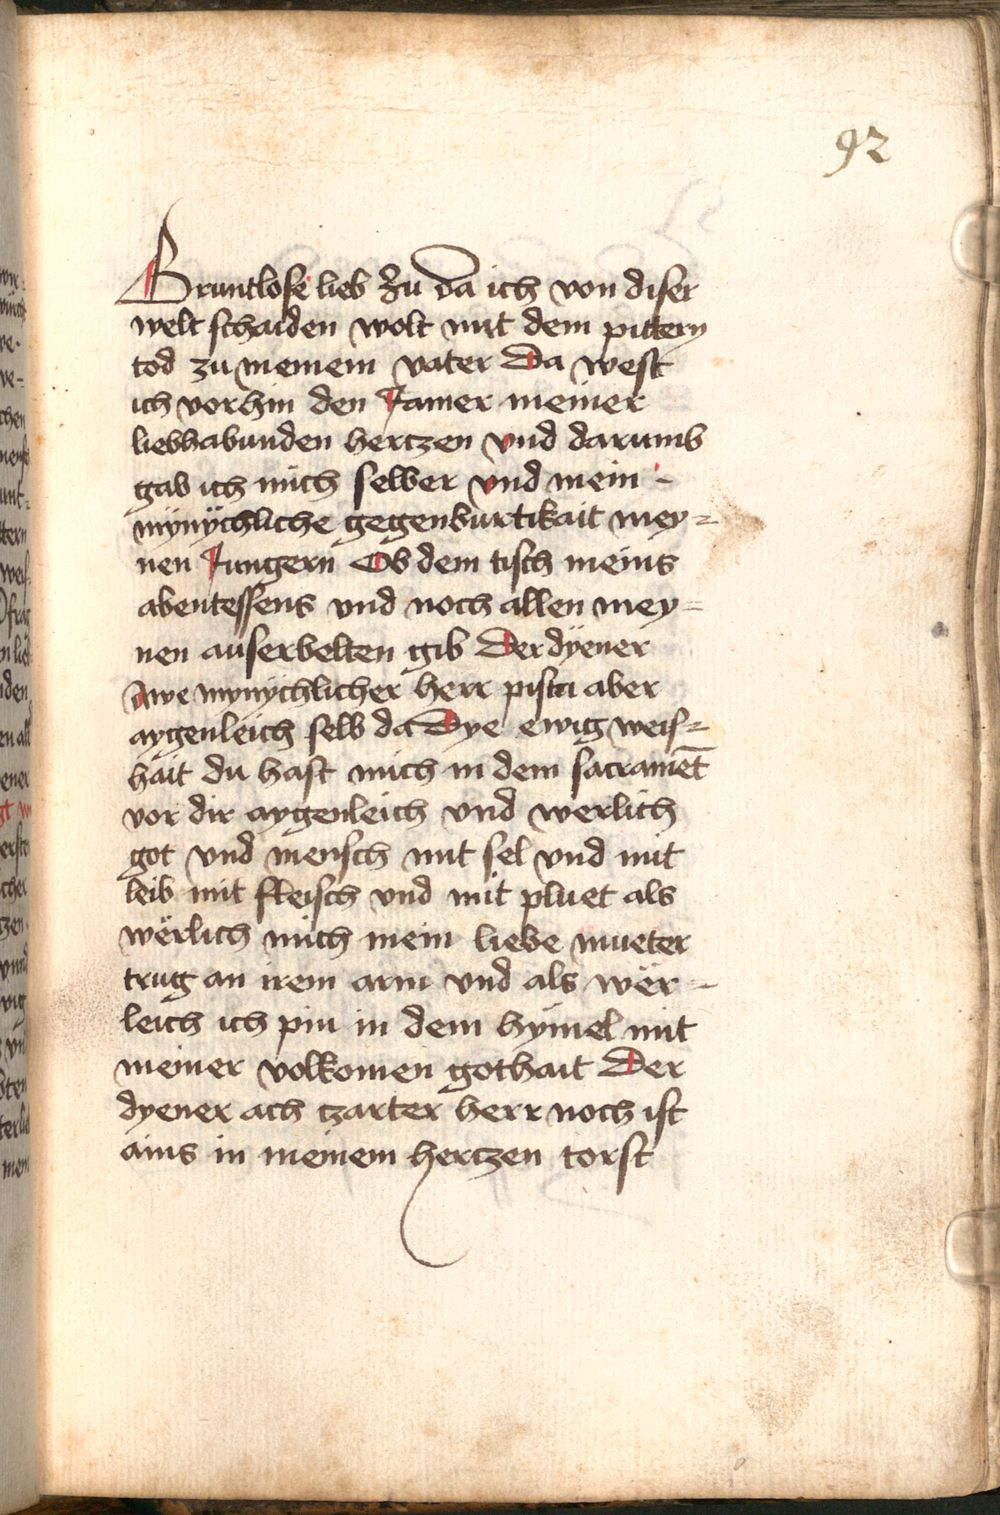 92
Gruntlose lieb Zu da ich von diser
welt schaiden wolt mit dem pittern
tod zu meinem vater Da west
ich vorhin den Jamer meiner
liebhabunden hertzen vnd darumb
gab ich mich selber vnd mein -
mÿnÿchliche gegenburtikait mey=
nen Jungern Ob dem tisch meins
abentessens vnd noch allen mey=
nen auserbelten gib Der dÿener
Awe mynÿchlicher herr pistu aber
aygenleich selb da Dye ewig weis=
hait du hast mich in dem sacramēt
vor dir aygenleich vnd werlich
got vnd mensch mit sel vnd mit
leib mit fleisch vnd mit pluet als
wërlich mich mein liebe mueter
trug an irem arm vnd als wër-
leich ich pin in dem hÿmel mit
meiner volkomen gothait Der
dyener ach czarter herr noch ist
ains in meinem hertzen torst